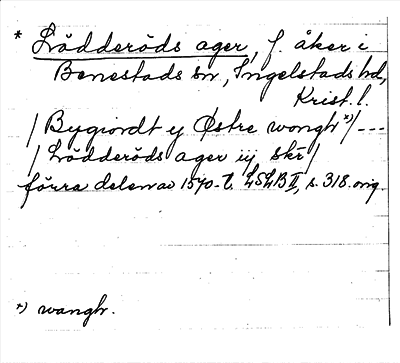 * Lödderöds ager, f. åker i
Benestads sn, Ingelstads hd,
Krist. l.
/ Bygiordt ij Østre wongh *)/ ---
/ Lödderöds ager iij skr /
förra delen av 1570-t. LSLB II, s. 318. orig.
*) wangh.